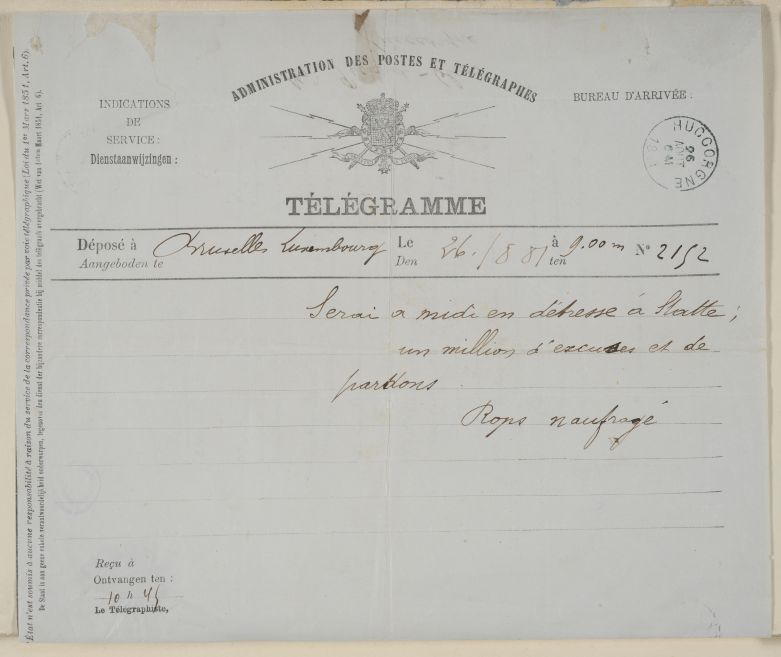 ADMINISTRATION DES POSTES ET TÉLÉGRAPHES
INDICATIONS
DE
SERVICE :
Dienstaanwijzingen :
BUREAU D'ARRIVÉE :
HUCCORGNE
26
AOUT
TÉLÉGRAMME
Déposé à Bruxelles Luxembourg Le 26/8 81 à 9.00 m N° 2152
Aangeboden te Den ten
Serai a midi en détresse à Statte ;
un million d'excuses et de
pardons.
Rops naufragé
Reçu à
Ontvangen ten :
10 h 45
Le Télégraphiste,
L'État n'est soumis à aucune responsabilité à raison du service de la correspondance privée par voie télégraphique (Loi du 1er Mars 1851, Art. 6).
De Staat is aan geene enkele verantwoordelijkheid onderworpen, tegenover den dienst der bijzondere correspondentie bij middel des telegraafs overgebracht (Wet van 1sten Maart 1851, Art. 6).